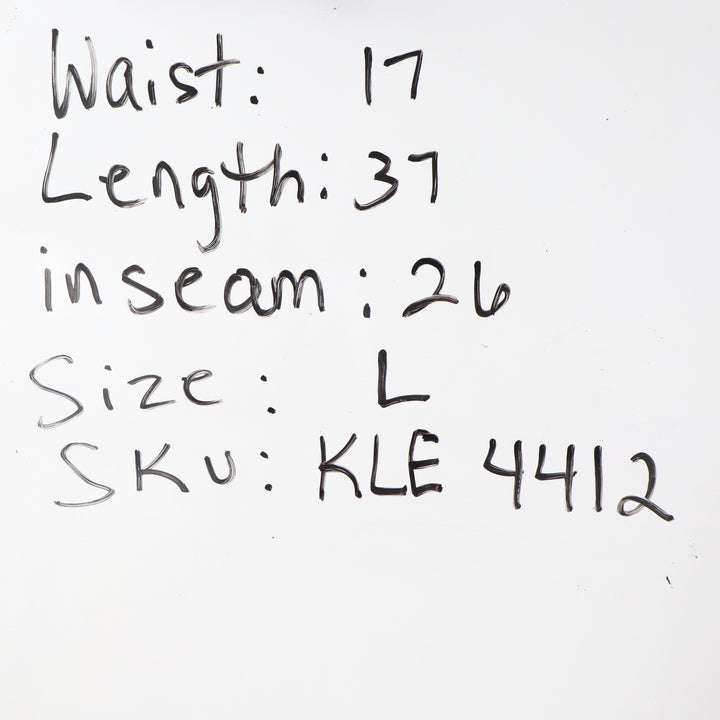 Waist: 17
Length: 37
inseam: 26
Size: L
SKU: KLE 4412